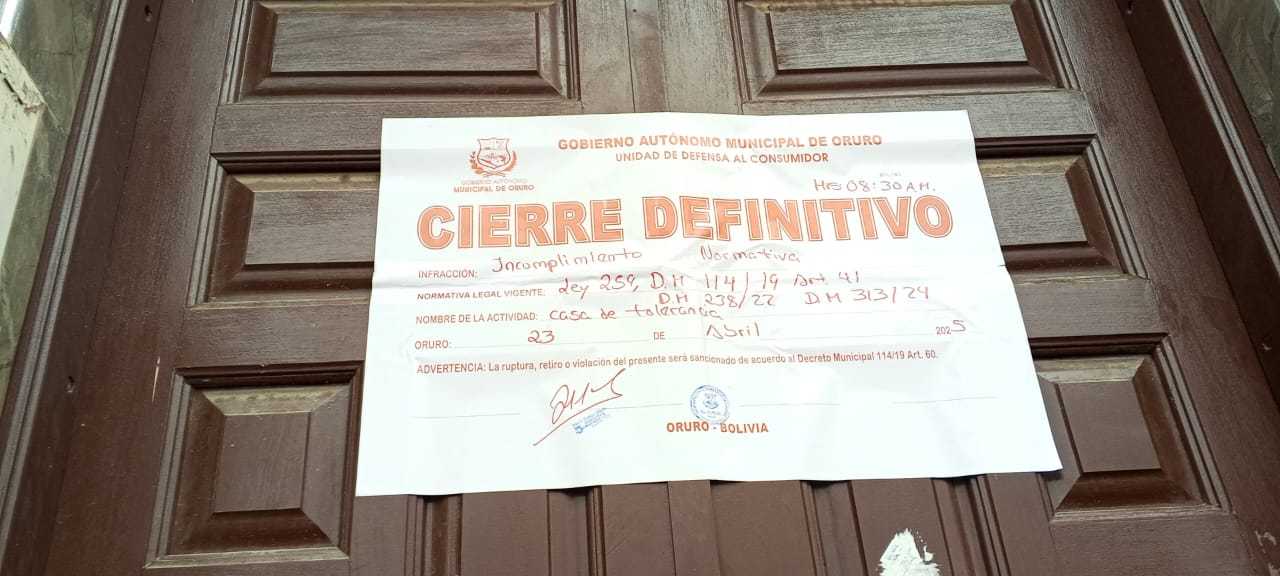 GOBIERNO AUTÓNOMO MUNICIPAL DE ORURO
UNIDAD DE DEFENSA AL CONSUMIDOR
GOBIERNO AUTÓNOMO
MUNICIPAL DE ORURO
Hrs 08:30 A.M.
CIERRE DEFINITIVO
INFRACCIÓN: Incomplimiento Normativa
NORMATIVA LEGAL VIGENTE: Ley 259, D.M 114/19 Art. 41
D.M 238/22 D.M 313/24
NOMBRE DE LA ACTIVIDAD: casa de tolerancia
ORURO: 23 DE Abril 2025
ADVERTENCIA: La ruptura, retiro o violación del presente será sancionado de acuerdo al Decreto Municipal 114/19 Art. 60.
ORURO - BOLIVIA